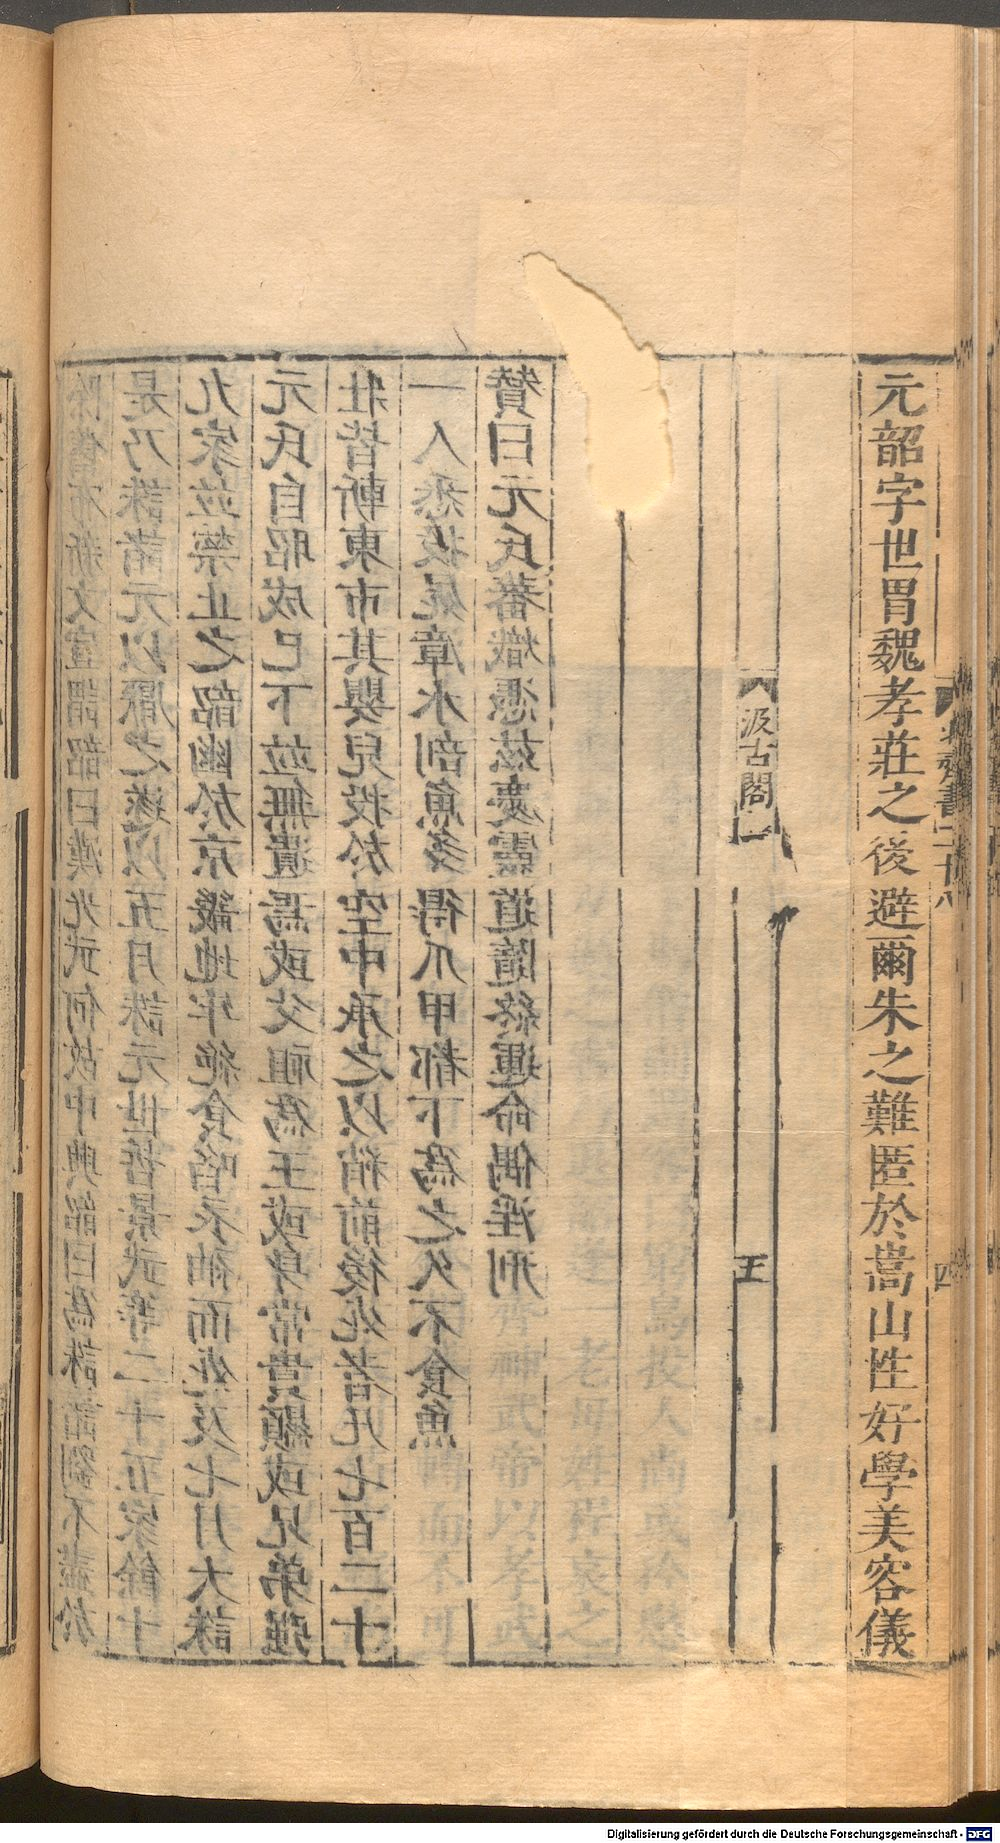 元韶字世胄魏孝莊之後避爾朱之難匿於嵩山性好學美容儀
北齊書二十八
四
汲古閣
王
贊曰元氏蕃熾憑茲慶靈道隨終運命偶淫刑
一人悉投屍漳水剖魚多得爪甲都下爲之久不食魚
壯皆斬東市其嬰兒投於空中承之以矟前後死者凡七百二十
元氏自昭成已下竝無遺焉或父祖爲王或身常貴顯或兄弟强
九家竝禁止之韶幽於京畿地牢絕食啗衣袖而死及七月大誅
是乃誅諸元以厭之遂以五月誅元世哲景武等二十五家餘十
除舊布新文宣謂韶曰漢光武何故中興韶曰爲誅諸劉不盡於
Digitalisierung gefördert durch die Deutsche Forschungsgemeinschaft - DFG